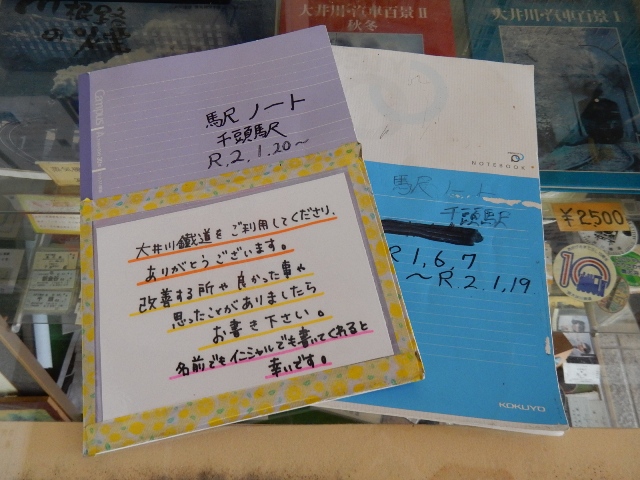 大井川・汽車百景 II
秋冬
大井川・汽車百景 I
Campus
駅ノート
千頭駅
R.2.1.20〜
大井川鐵道をご利用してくださり、
ありがとうございます。
改善する所や良かった事や
思ったことがありましたら
お書き下さい。
名前でもイニシャルでも書いてくれると
幸いです。
NOTEBOOK
駅ノート
千頭駅
R1,6,7
〜R.2.1,19
KOKUYO
¥2,500
10